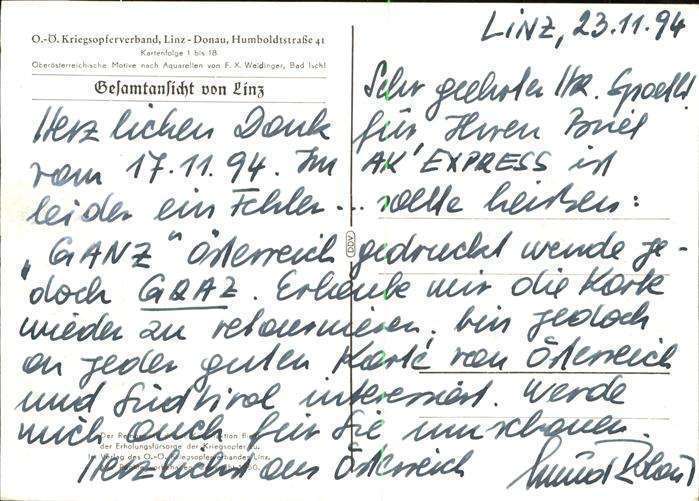 O.-Ö. Kriegsopferverband, Linz - Donau, Humboldtstraße 41
Kartenfolge 1 bis 18
Oberösterreichische Motive nach Aquarellen von F. X. Weidinger, Bad Ischl
Gesamtansicht von Linz
LINZ, 23.11.94
Sehr geehrter Hr.
Herzlichen Dank für Ihren Brief
vom 17.11.94. Im AK'EXPRESS ist
leider ein Fehler... sollte heißen:
"GANZ" Österreich gedruckt wurde je-
doch GRAZ. Erlaube mir die Karte
wieder zu retournieren. bin jedoch
an jeder guten Karte von Österreich
und Südtirol interessiert. Werde
mich auch für Sie umschauen.
Herzlichst aus Österreich
der Erholungsfürsorge der Kriegsopfer
Im Verlag des O.-Ö. Kriegsopferverbandes Linz